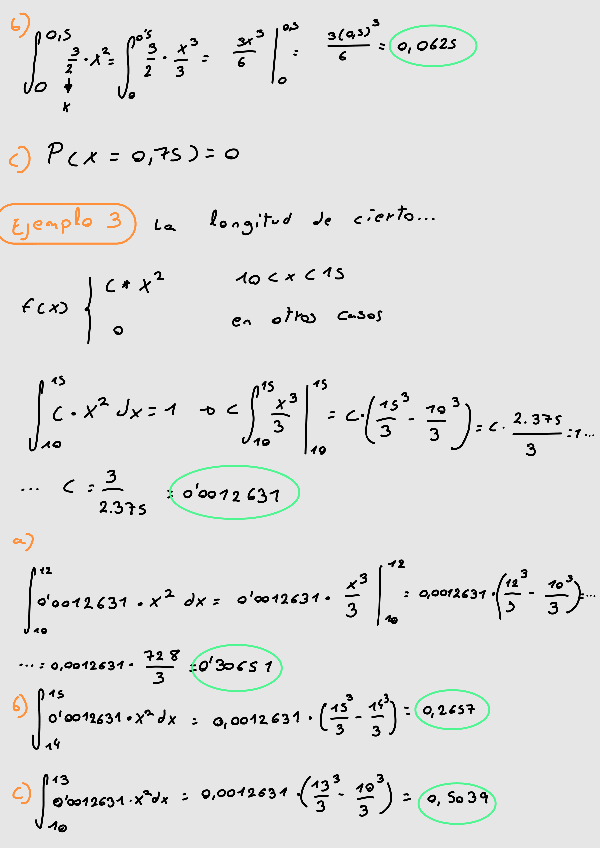 b) ∫₀^0,5 3/2 · x² = ∫₀^0'5 3/2 · x³/3 = 3x³/6 |₀^0,5 = 3(0,5)³/6 = 0,0625
↓
K
c) P(X = 0,75) = 0
Ejemplo 3 La longitud de cierto...
f(x) { C * x² 10 < x < 15
0 en otros casos
∫₁₀^15 C · x² dx = 1 → C ∫₁₀^15 x³/3 |₁₀^15 = C · (15³/3 - 10³/3) = C · 2.375/3 = 1 ...
... C = 3/2.375 = 0'0012631
a)
∫₁₀^12 0'0012631 · x² dx = 0'0012631 · x³/3 |₁₀^12 = 0,0012631 · (12³/3 - 10³/3) = ...
... = 0,0012631 · 728/3 = 0'30651
b) ∫₁₄^15 0'0012631 · x² dx = 0,0012631 · (15³/3 - 14³/3) = 0,2657
c) ∫₁₀^13 0'0012631 · x² dx = 0,0012631 · (13³/3 - 10³/3) = 0,5039